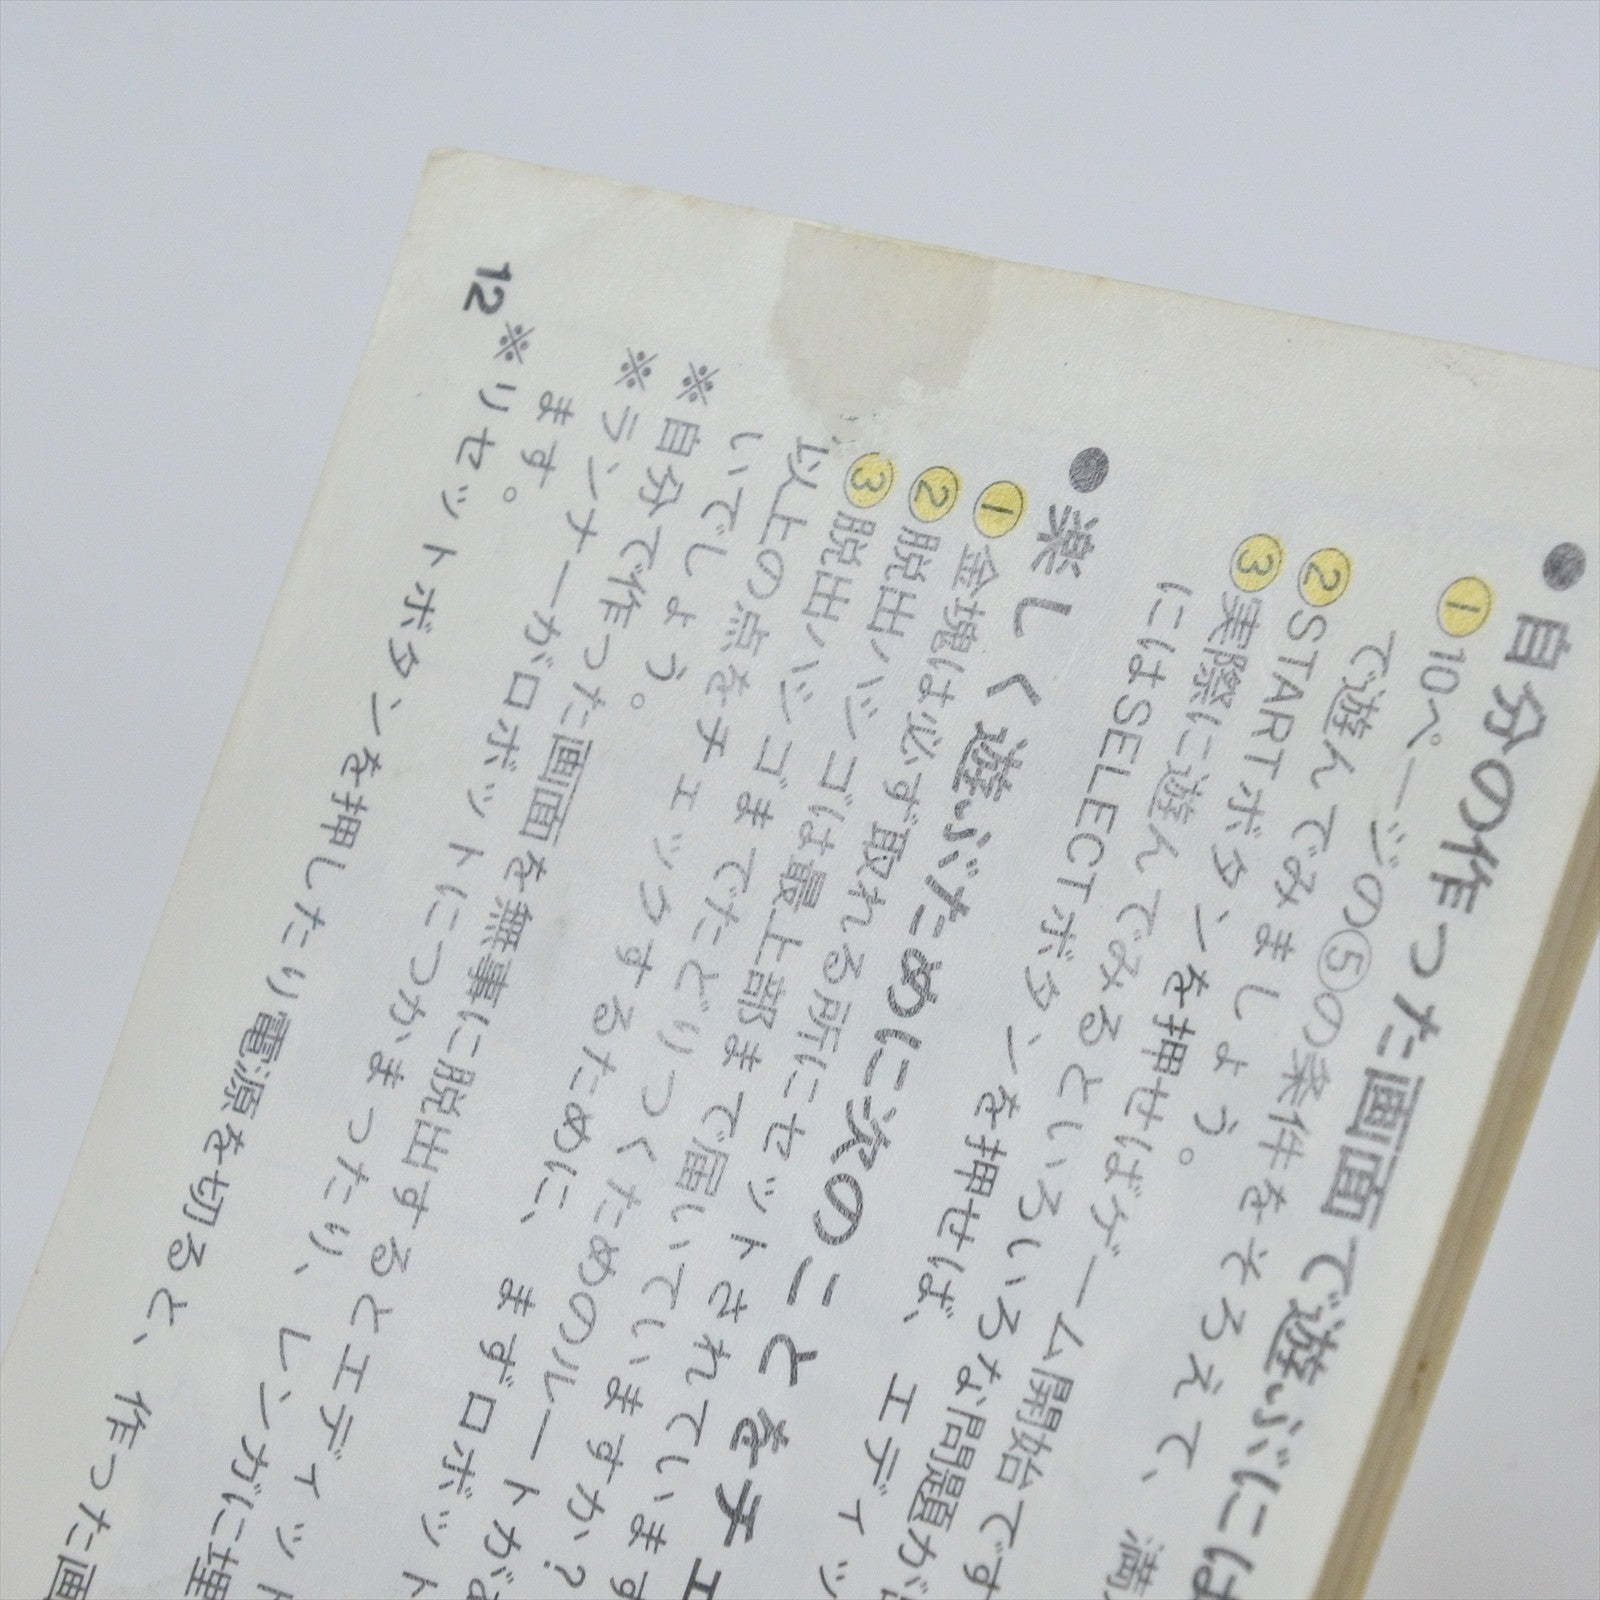 ●自分の作った画面で遊ぶには
①10ページの⑤の条件をそろえて、満
で遊んでみましょう。
②STARTボタンを押せばゲーム開始です
③実際に遊んでみるといろいろな問題が
にはSELECTボタンを押せば、エディッ
●楽しく遊ぶために次のことをチェ
①金塊は必ず取れる所にセットされています
②脱出ハシゴは最上部まで届いていますか?
③脱出ハシゴまでたどりつくためのルートが
以上の点をチェックするために、まずロボット
いでしょう。
※自分で作った画面を無事に脱出するとエディット
※ランナーがロボットにつかまったり、レンガに埋
ます。
※リセットボタンを押したり電源を切ると、作った画
12